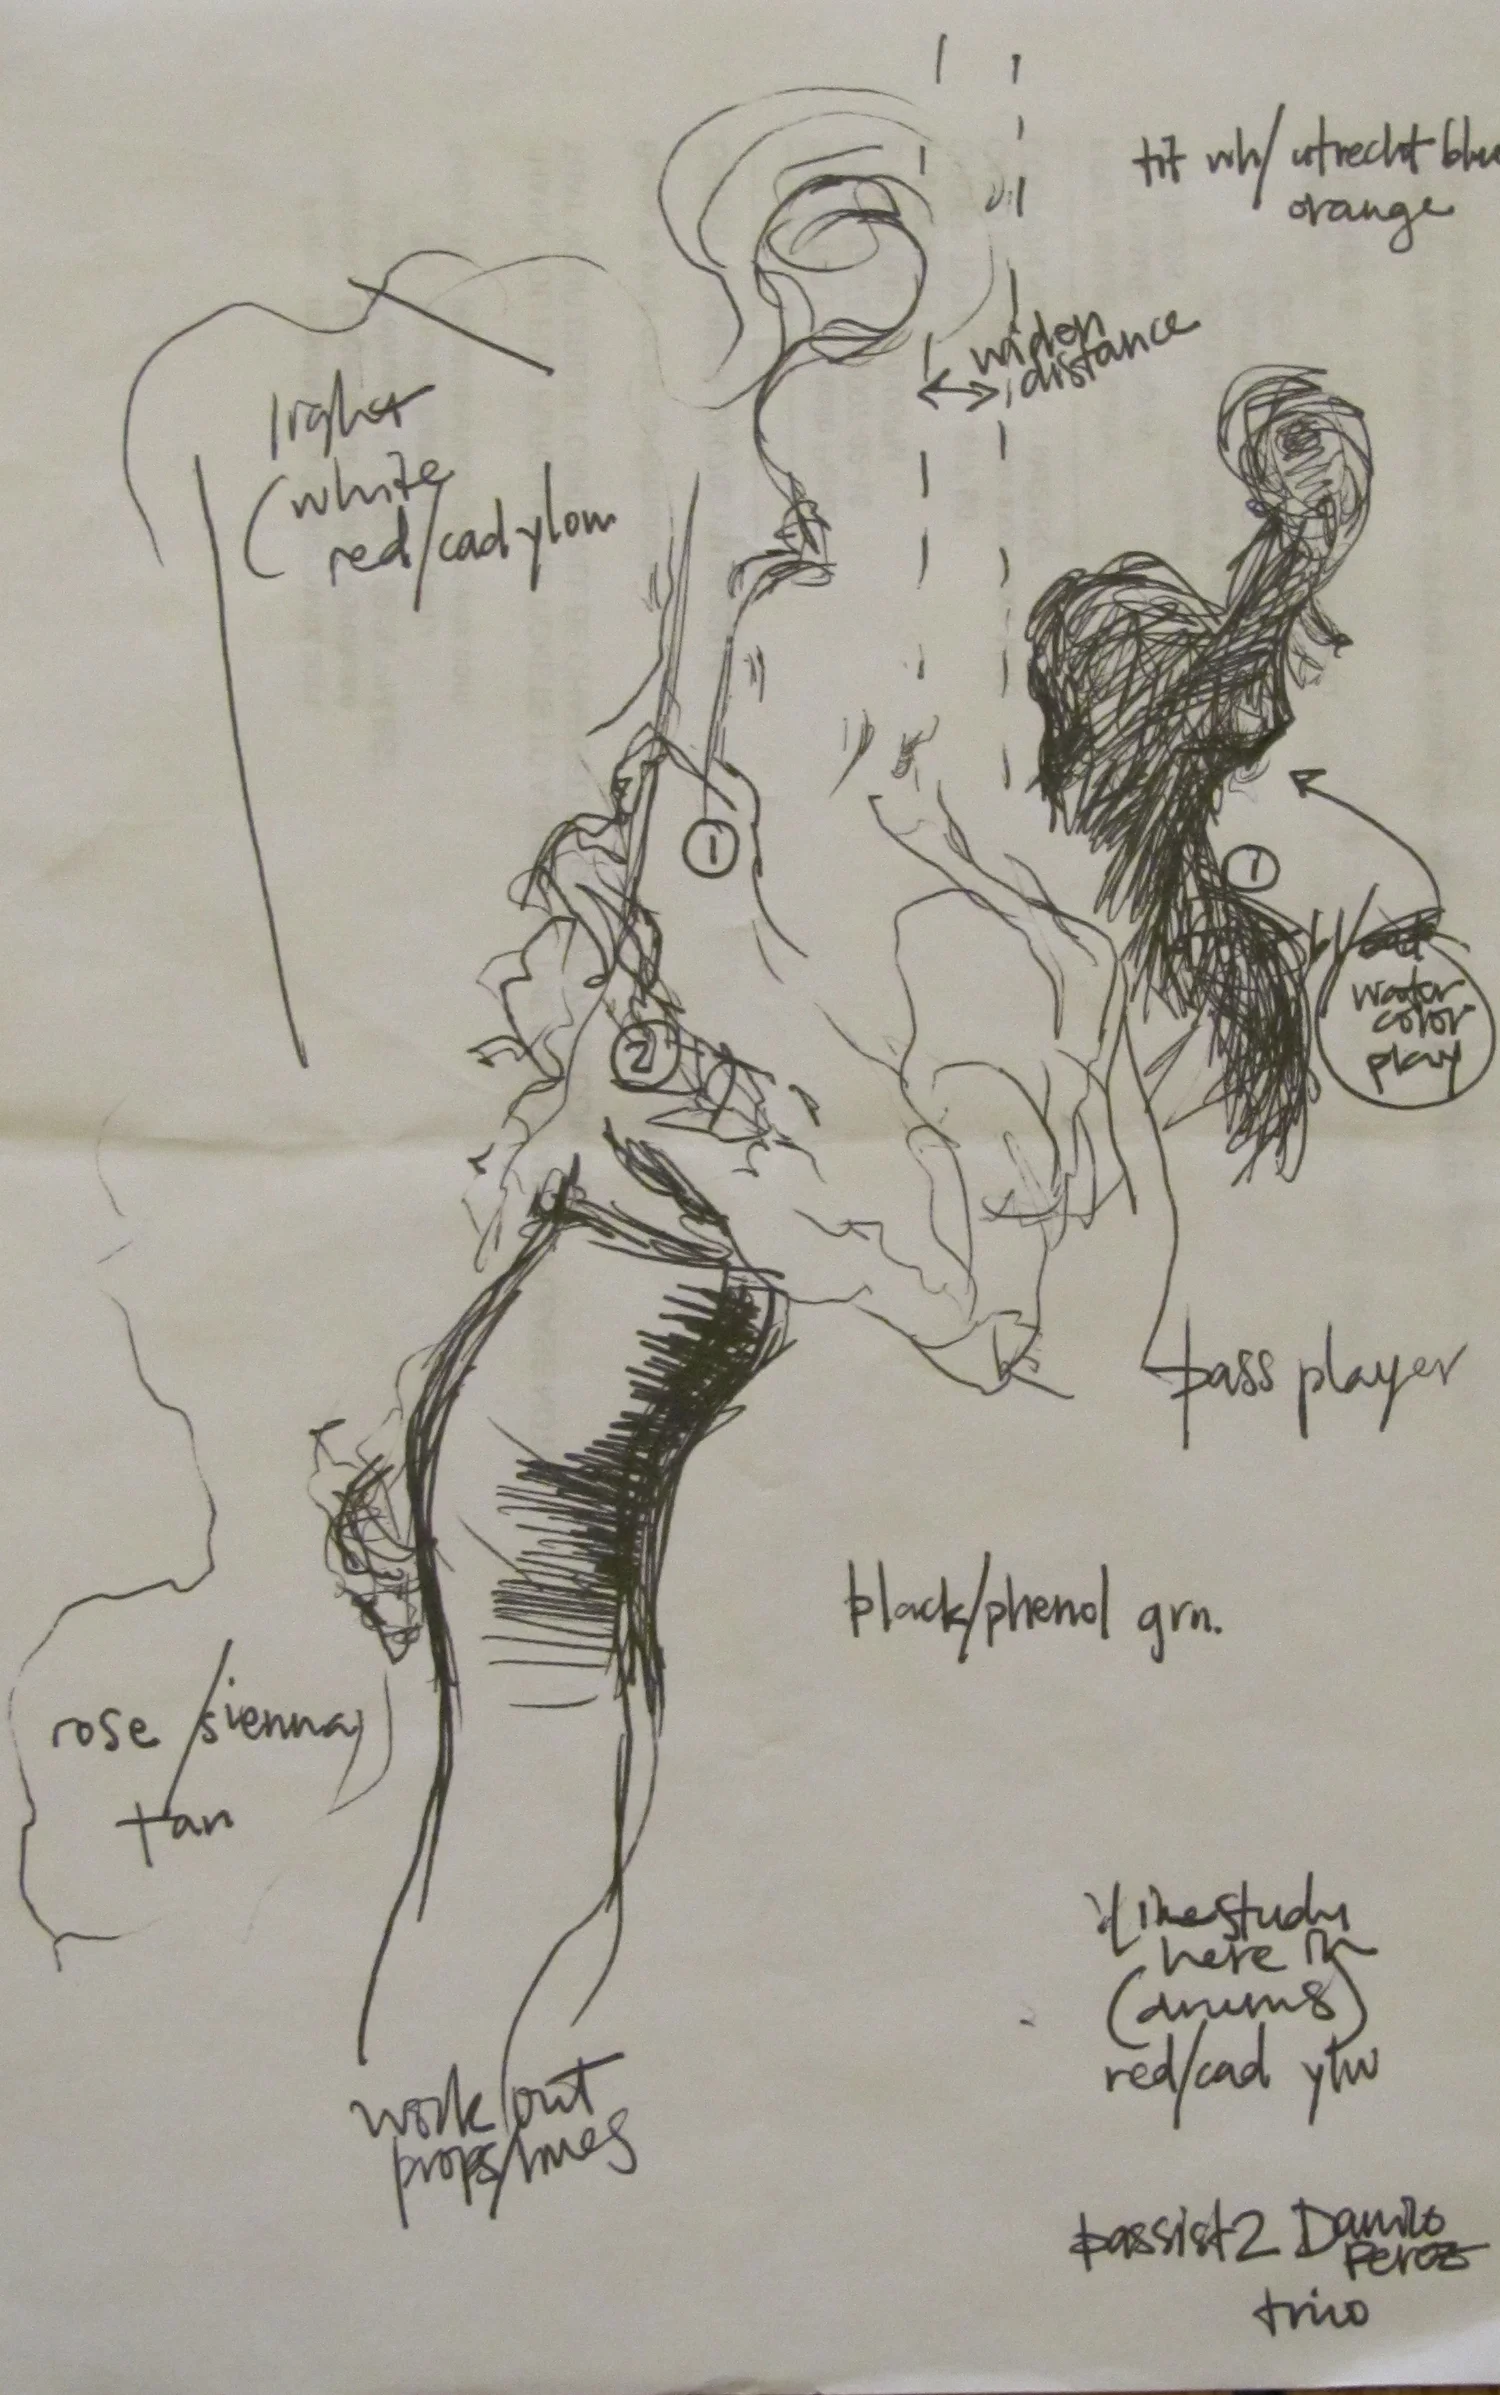 tit wh/ utrecht blu
orange
widen
distance
light
(white
red/cad ylow
1
1
2
water
color
play
bass player
black/phenol grn.
rose/sienna
tan
line study
here in
(drums)
red/cad ylw
work out
props/lines
bassist 2 Danilo
Perez
trio